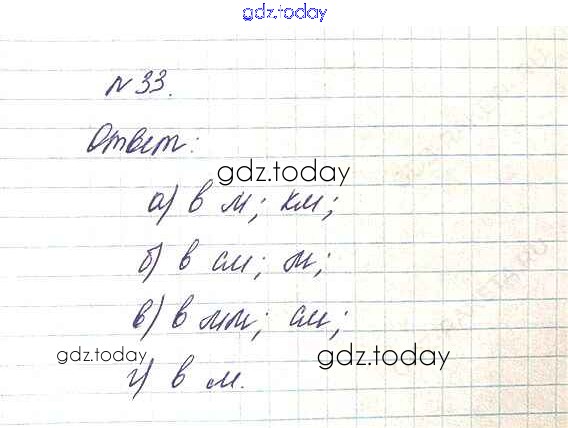 gdz.today
№ 33.
Ответ:
gdz.today
а) в м; км;
б) в см; м;
в) в мм; см;
gdz.today
gdz.today
г) в м.